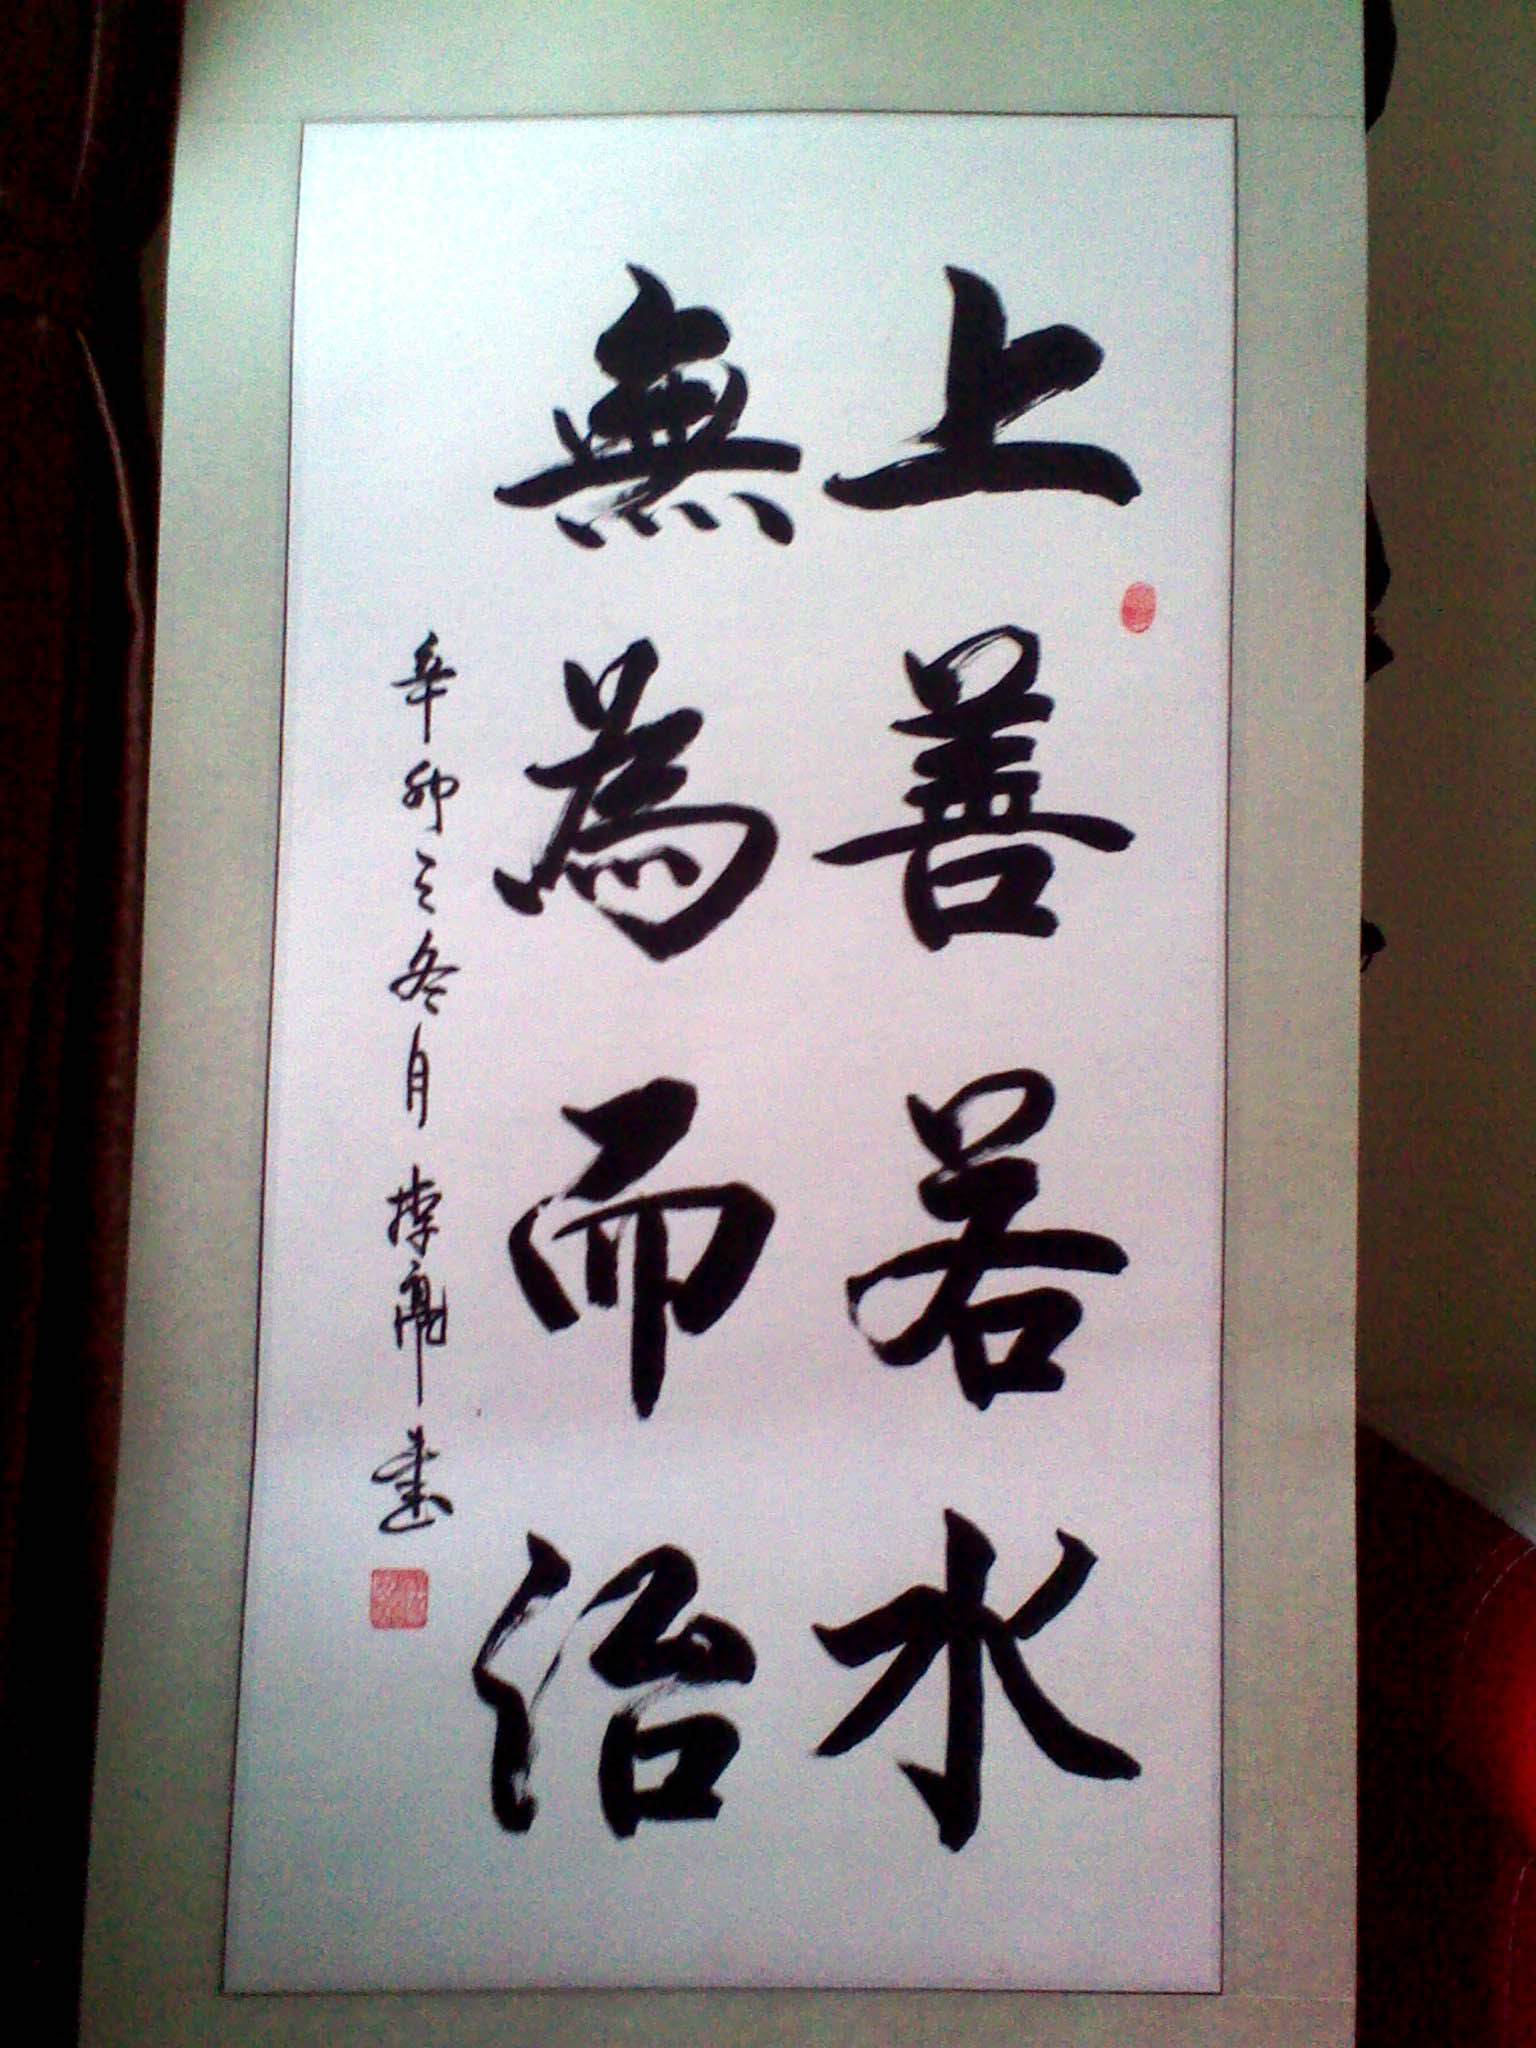 上善若水
無為而治
辛卯之冬月李亮書